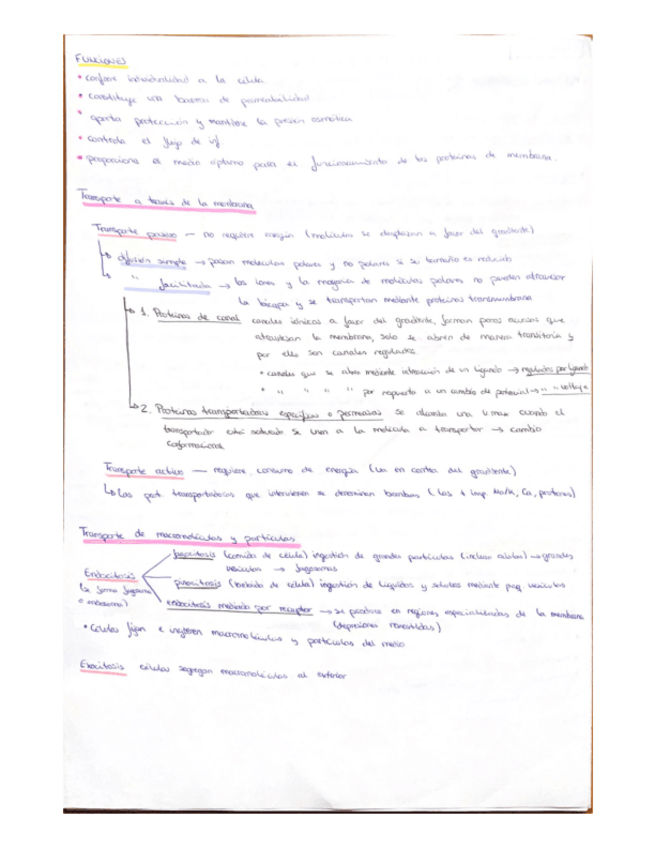 FUNCIONES
• confiere individualidad a la célula.
• constituye una barrera de permeabilidad
• aporta protección y mantiene la presión osmótica
• controla el flujo de inf
• proporciona el medio óptimo para el funcionamiento de las proteínas de membrana.
Transporte a través de la membrana
Transporte pasivo — no requiere energía (moléculas se desplazan a favor del gradiente)
difusión simple → pasan moléculas polares y no polares si su tamaño es reducido
" facilitada → los iones y la mayoría de moléculas polares no pueden atravesar
la bicapa y se transportan mediante proteínas transmembrana
1. Proteínas de canal canales iónicos a favor del gradiente, forman poros acuosos que
atraviesan la membrana, solo se abren de manera transitoria y
por ello son canales regulados.
• canales que se abren mediante introducción de un ligando → regulados por ligando
• " " " " por respuesta a un cambio de potencial → " " voltaje
2. Proteínas transportadoras específicas o permeasas se alcanza una V max cuando el
transportador está saturado se unen a la molécula a transportar → cambio
conformacional
Transporte activo — requiere consumo de energía (va en contra del gradiente)
↳ las prot. transportadoras que intervienen se denominan bombas (las + imp Na/K, Ca, protones)
Transporte de macromoléculas y partículas
fagocitosis (comida de célula) ingestión de grandes partículas (incluso células) → grandes
vesículas → fagosomas
Endocitosis
(se forma fagosoma
o endosoma)
pinocitosis (bebida de célula) ingestión de líquidos y solutos mediante peq vesículas
endocitosis mediada por receptor → se produce en regiones especializadas de la membrana
(depresiones revestidas)
• Células fijan e ingieren macromoléculas y partículas del medio
Exocitosis células segregan macromoléculas al exterior